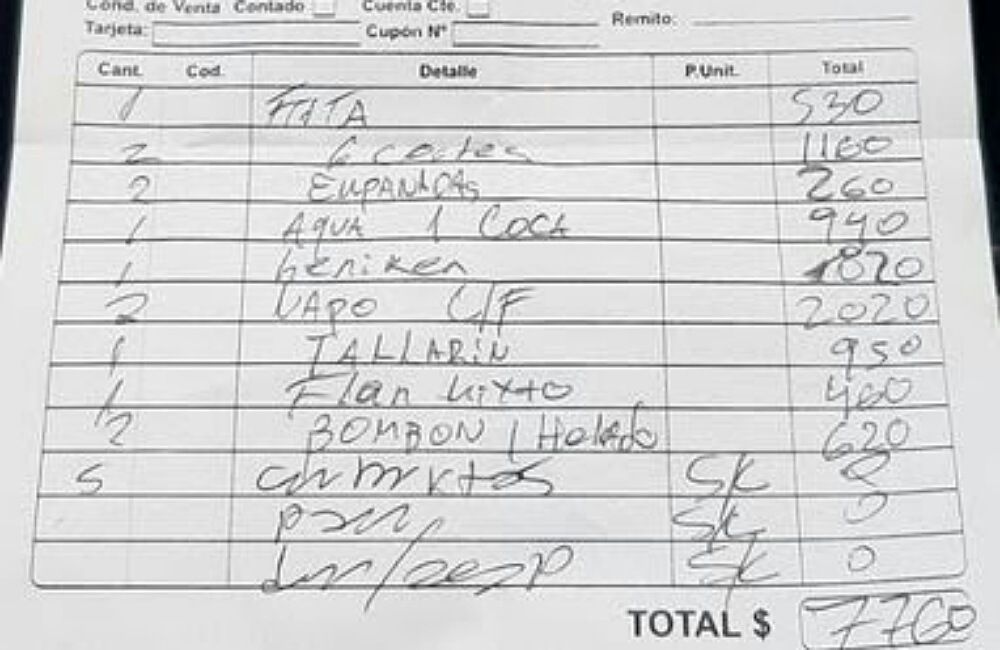 Cond. de Venta Contado Cuenta Cte.
Tarjeta: Cupón Nº Remito:
Cant. Cod. Detalle P.Unit. Total
1 FITA 530
2 1160
2 EMPANADAS 260
1 AQUA 1 COCA 940
1 heniken 1820
2 VAPO C/F 2020
1 TALLARIN 950
1 Flan Mixto 460
2 BOMBON 1 Helado 620
5 S/C 0
S/C 0
S/C 0
TOTAL $ 7760